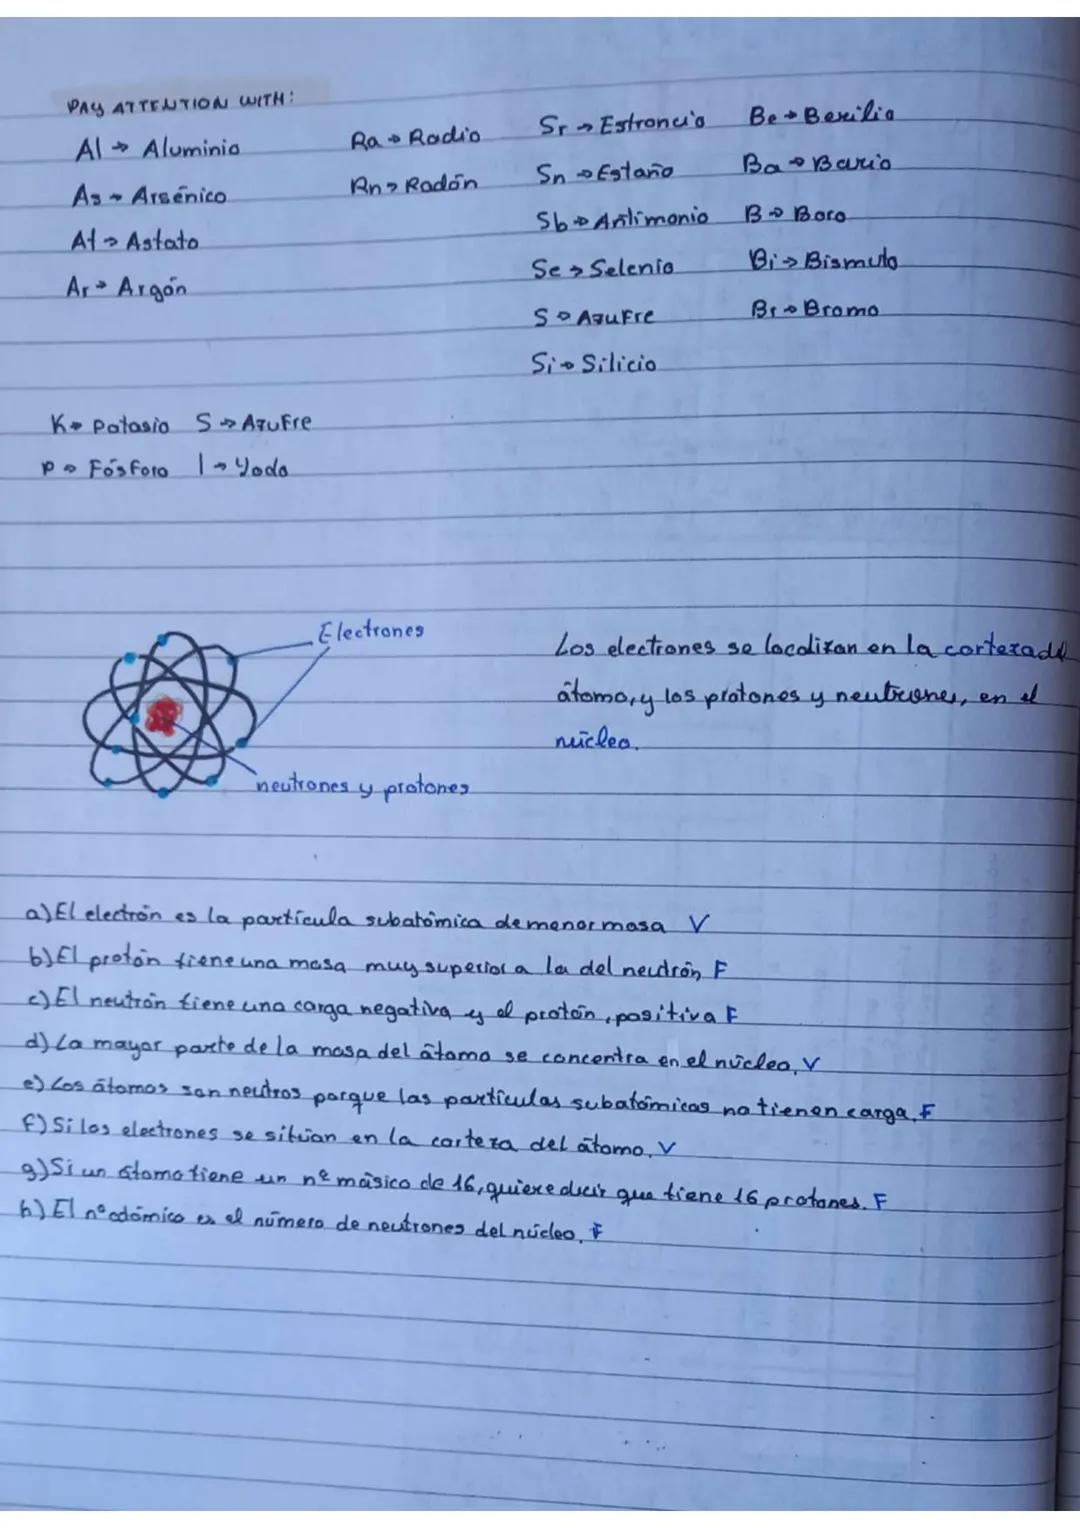 PAY ATTENTION WITH:
Al → Aluminio
As → Arsénico
At → Astato
Ar → Argón
Ra → Radio
Rn → Radón
Sr → Estroncio
Sn → Estaño
Sb → Antimonio
Se → Selenio
S → Azufre
Si → Silicio
Be → Berilio
Ba → Bario
B → Boro
Bi → Bismuto
Br → Bromo
K → Potasio S → Azufre
P → Fósforo I → Yodo
Electrones
neutrones y protones
Los electrones se localizan en la corteza del
átomo, y los protones y neutrones, en el
núcleo.
a) El electrón es la partícula subatómica de menor masa V
b) El protón tiene una masa muy superior a la del neutrón, F
c) El neutrón tiene una carga negativa y el protón, positiva F
d) La mayor parte de la masa del átomo se concentra en el núcleo, V
e) Los átomos son neutros porque las partículas subatómicas no tienen carga, F
f) Si los electrones se sitúan en la corteza del átomo, V
g) Si un átomo tiene un nº másico de 16, quiere decir que tiene 16 protones. F
h) El nº atómico es el número de neutrones del núcleo, F